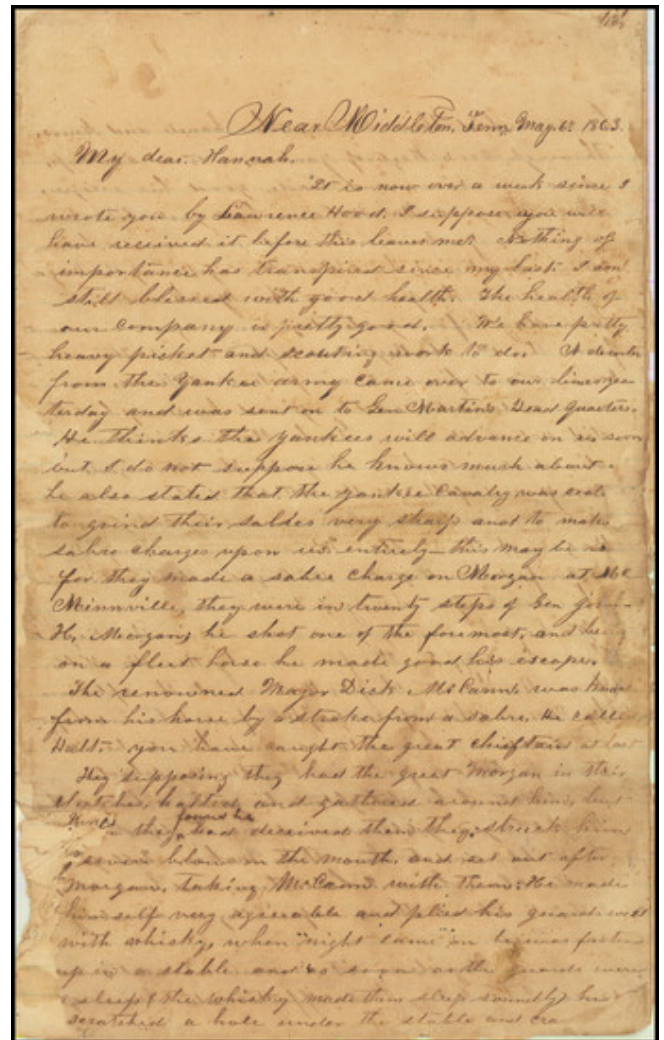 Near Middleton, Tenn May. 6th 1863.
My dear. Hannah.
It is now over a week since I
wrote you by Lawrence Hood. I suppose you will
have received it before this leaves me. Nothing of
importance has transpired since my last. I am
still blessed with good health. The health of
our company is pretty good. We have pretty
heavy picket and scouting work to do. A
from the Yankee army came over to our lines yes
terday and was sent on to Gen Martin's Head Quarters.
He thinks the yankees will advance on us soon
but I do not suppose he knows much about
he also stated that the yankee Cavalry was
to grind their sabres very sharp and to make
sabre charges upon us entirely— this may be so
for they made a sabre charge on Morgan at Mc
Minnville, they were in twenty steps of Gen John
H. Morgan; he shot one of the foremost, and being
on a fleet horse he made good his escape.
The renowned Major Dick McCann was
from his horse by a stroke from a sabre. He called
Halt.— you have caught the great chieftain at last
They supposing they had the great Morgan in their
clutches, halted and gathered around him, but
they found he had deceived them they struck him
severe blow in the mouth, and set out after
Morgan, taking McCann with them. He made
himself very agreeable and plied his guard well
with whisky, when "night came" on he was
up in a stable and as soon as the guards were
asleep (the whisky made them sleep soundly) he
scratched a hole under the stable and